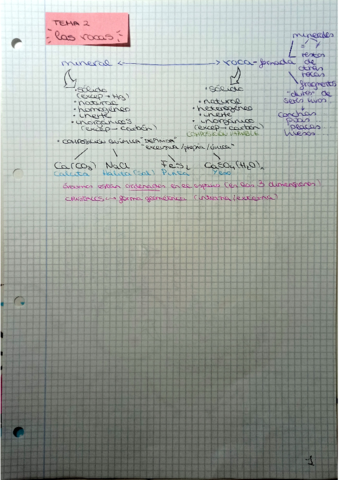 TEMA 2
las rocas
mineral ↔ roca - formada
minerales
restos de otras rocas
fragmentos "duros" de seres vivos
conchas
púas
placas
huesos
• sólido
(excep → Hg)
• natural
• homogéneo
• inerte
• inorgánicos
(excep → carbón)
• sólido
• natural
• heterogéneo
• inerte
• inorgánico
(excep → carbón)
• composición química "definida"
Ca(CO3) NaCl FeS2 CaSO4(H2O)2
Calcita Halita (sal) Pirita Yeso
átomos están ordenados en el espacio (en las 3 dimensiones)
cristales → forma geométrica (interna/externa)
1